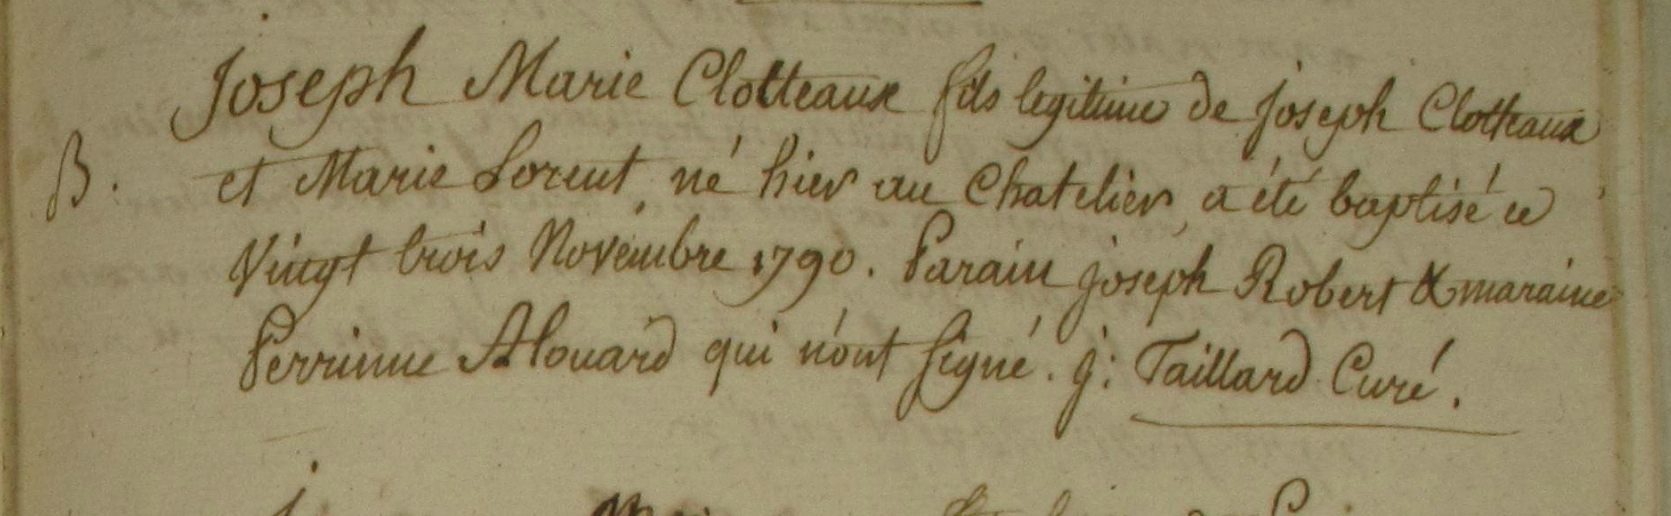 Joseph Marie Clotteaux fils legitime de joseph Clotteaux
B. et Marie Lorent né hier au Chatelier a été baptisé ce
Vingt trois Novembre 1790. Parain joseph Robert & maraine
Perrinne Alouard qui n'ont signé. j: Taillard Curé.